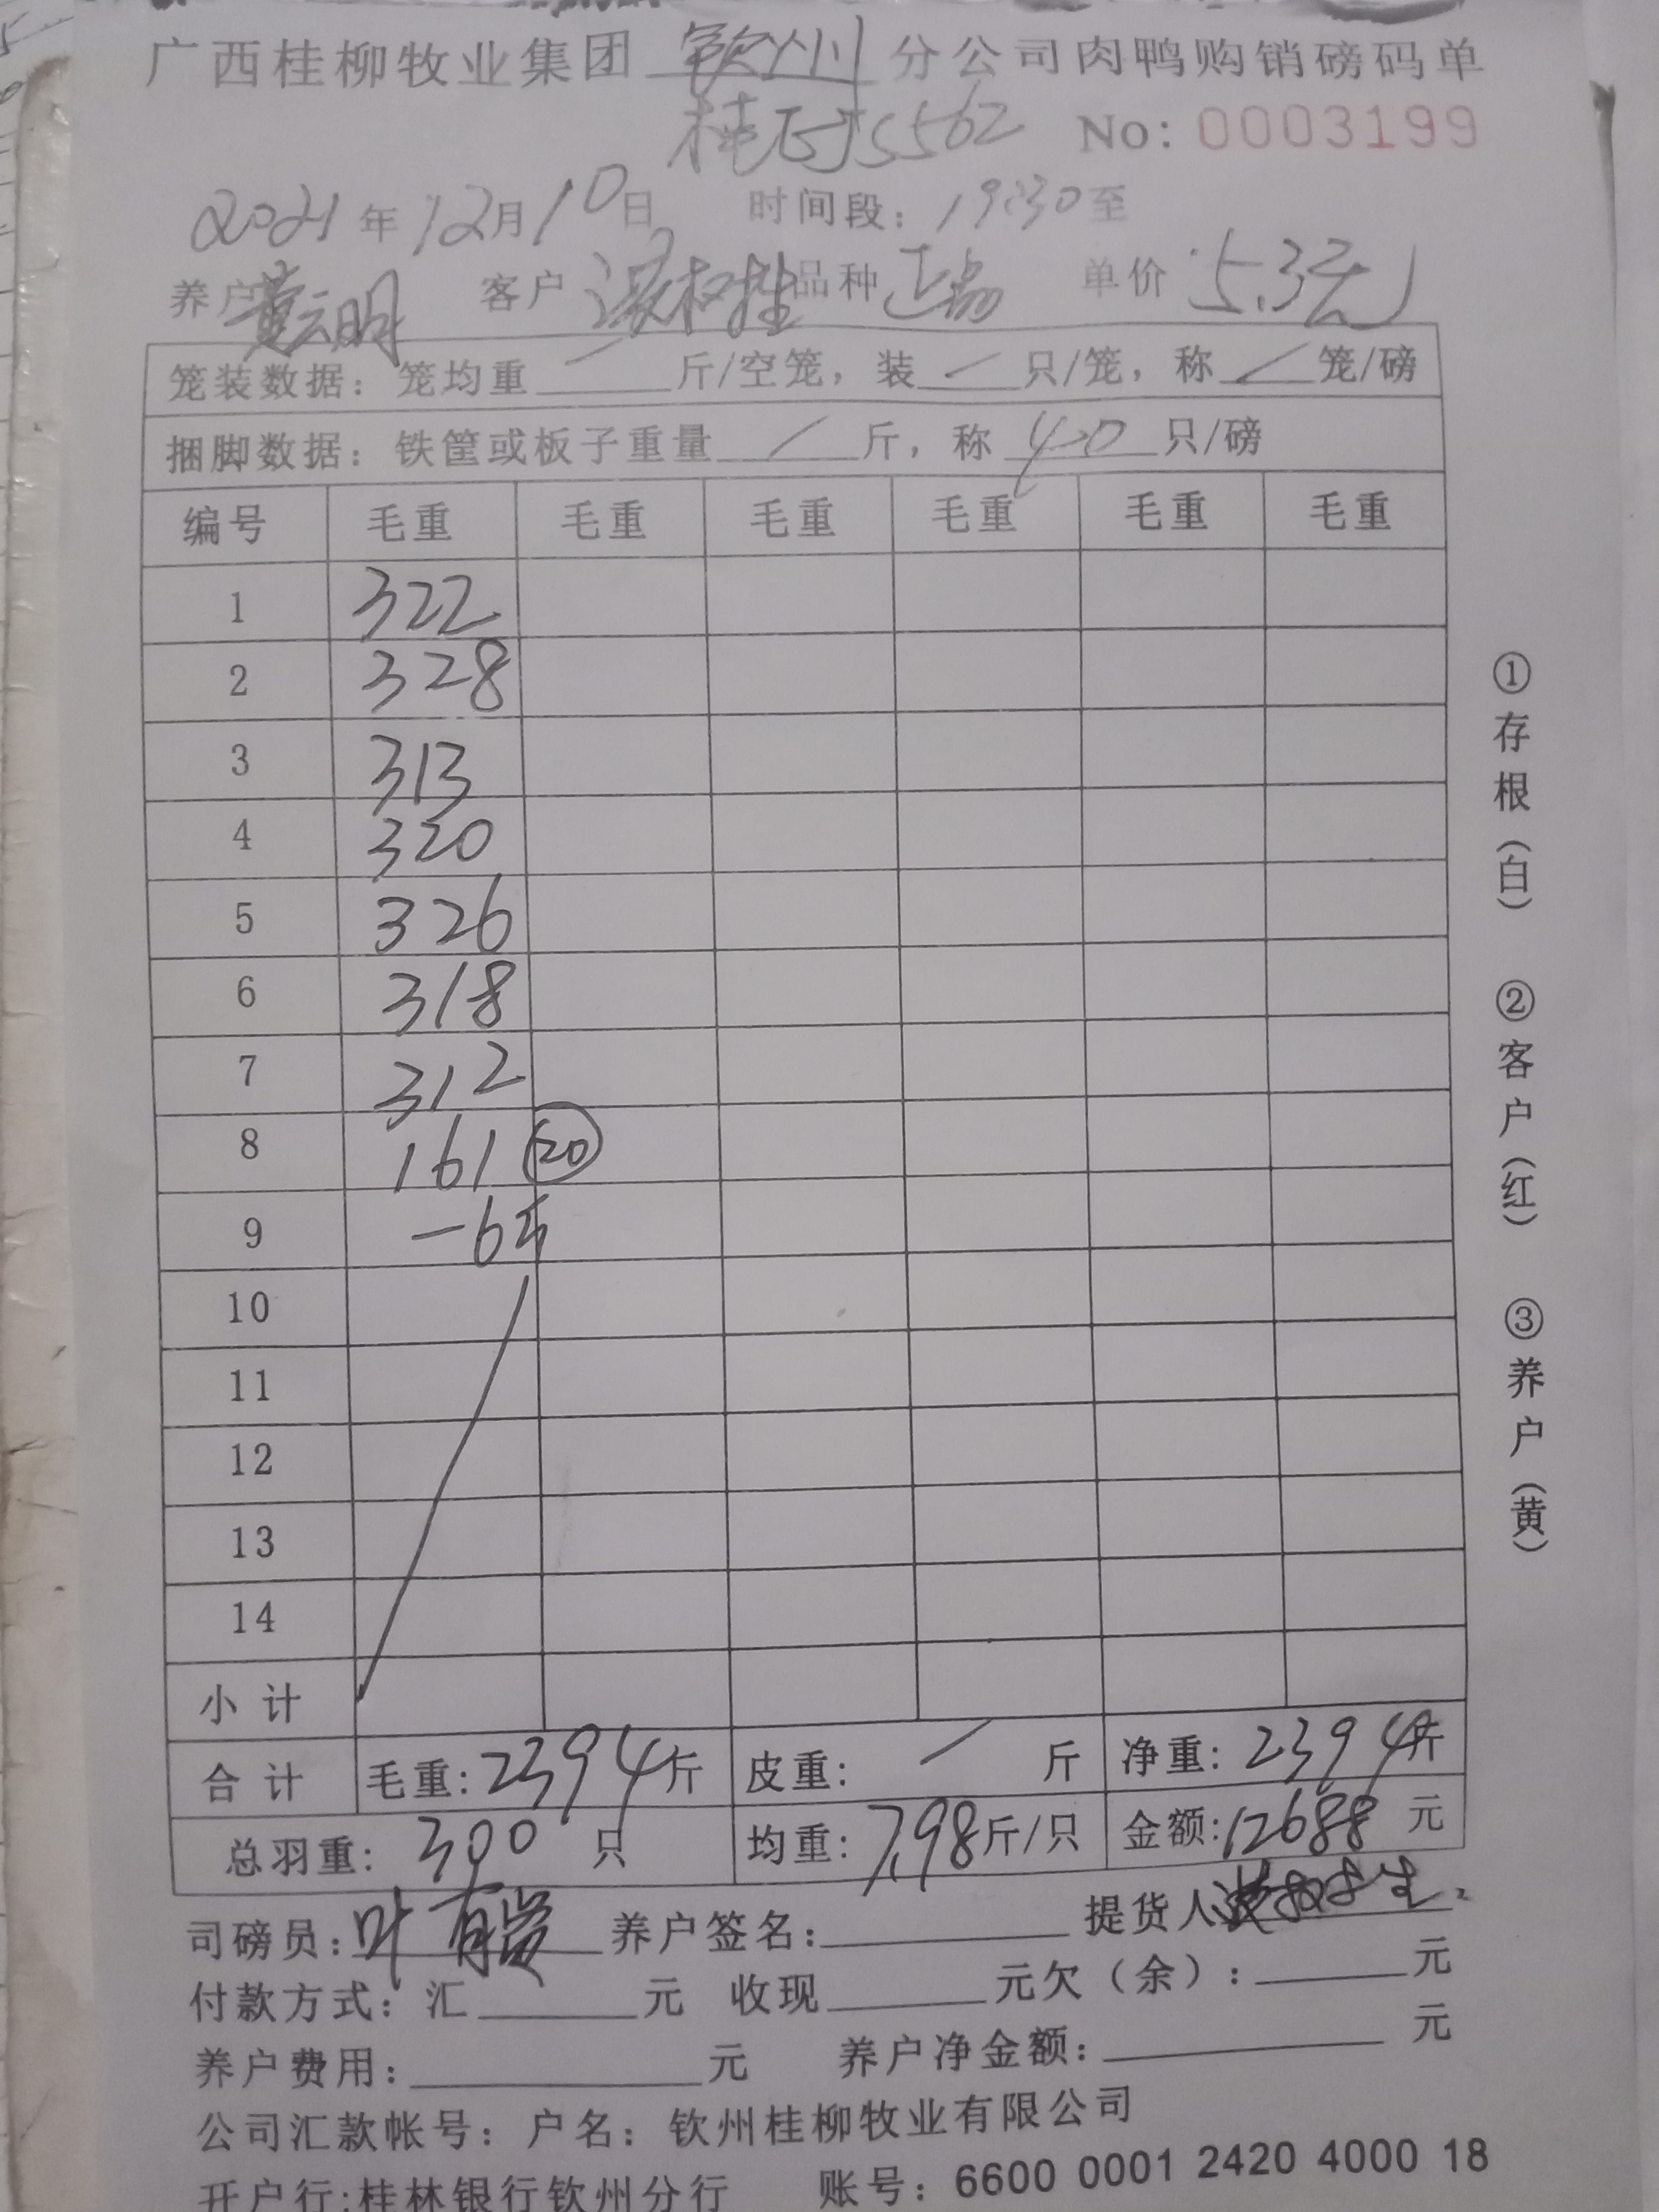 广西桂柳牧业集团 钦州 分公司肉鸭购销磅码单
S562 No: 0003199
2021年12月10日 时间段: 19:30至
养户 黄云明 客户 品种 单价 5.3元
笼装数据: 笼均重 / 斤/空笼, 装 / 只/笼, 称 / 笼/磅
捆脚数据: 铁筐或板子重量 / 斤, 称 40 只/磅
编号 毛重 毛重 毛重 毛重 毛重 毛重
1 322
2 328
3 313
4 320
5 326
6 318
7 312
8 161 20
9 -6斤
10
11
12
13
14
小计
合计 毛重: 2394斤 皮重: / 斤 净重: 2394斤
总羽重: 300 只 均重: 7.98斤/只 金额: 12688 元
司磅员: 叶 养户签名: 提货人
付款方式: 汇 元 收现 元欠(余): 元
养户费用: 元 养户净金额: 元
公司汇款帐号: 户名: 钦州桂柳牧业有限公司
开户行:桂林银行钦州分行 账号: 6600 0001 2420 4000 18
①存根(白) ②客户(红) ③养户(黄)